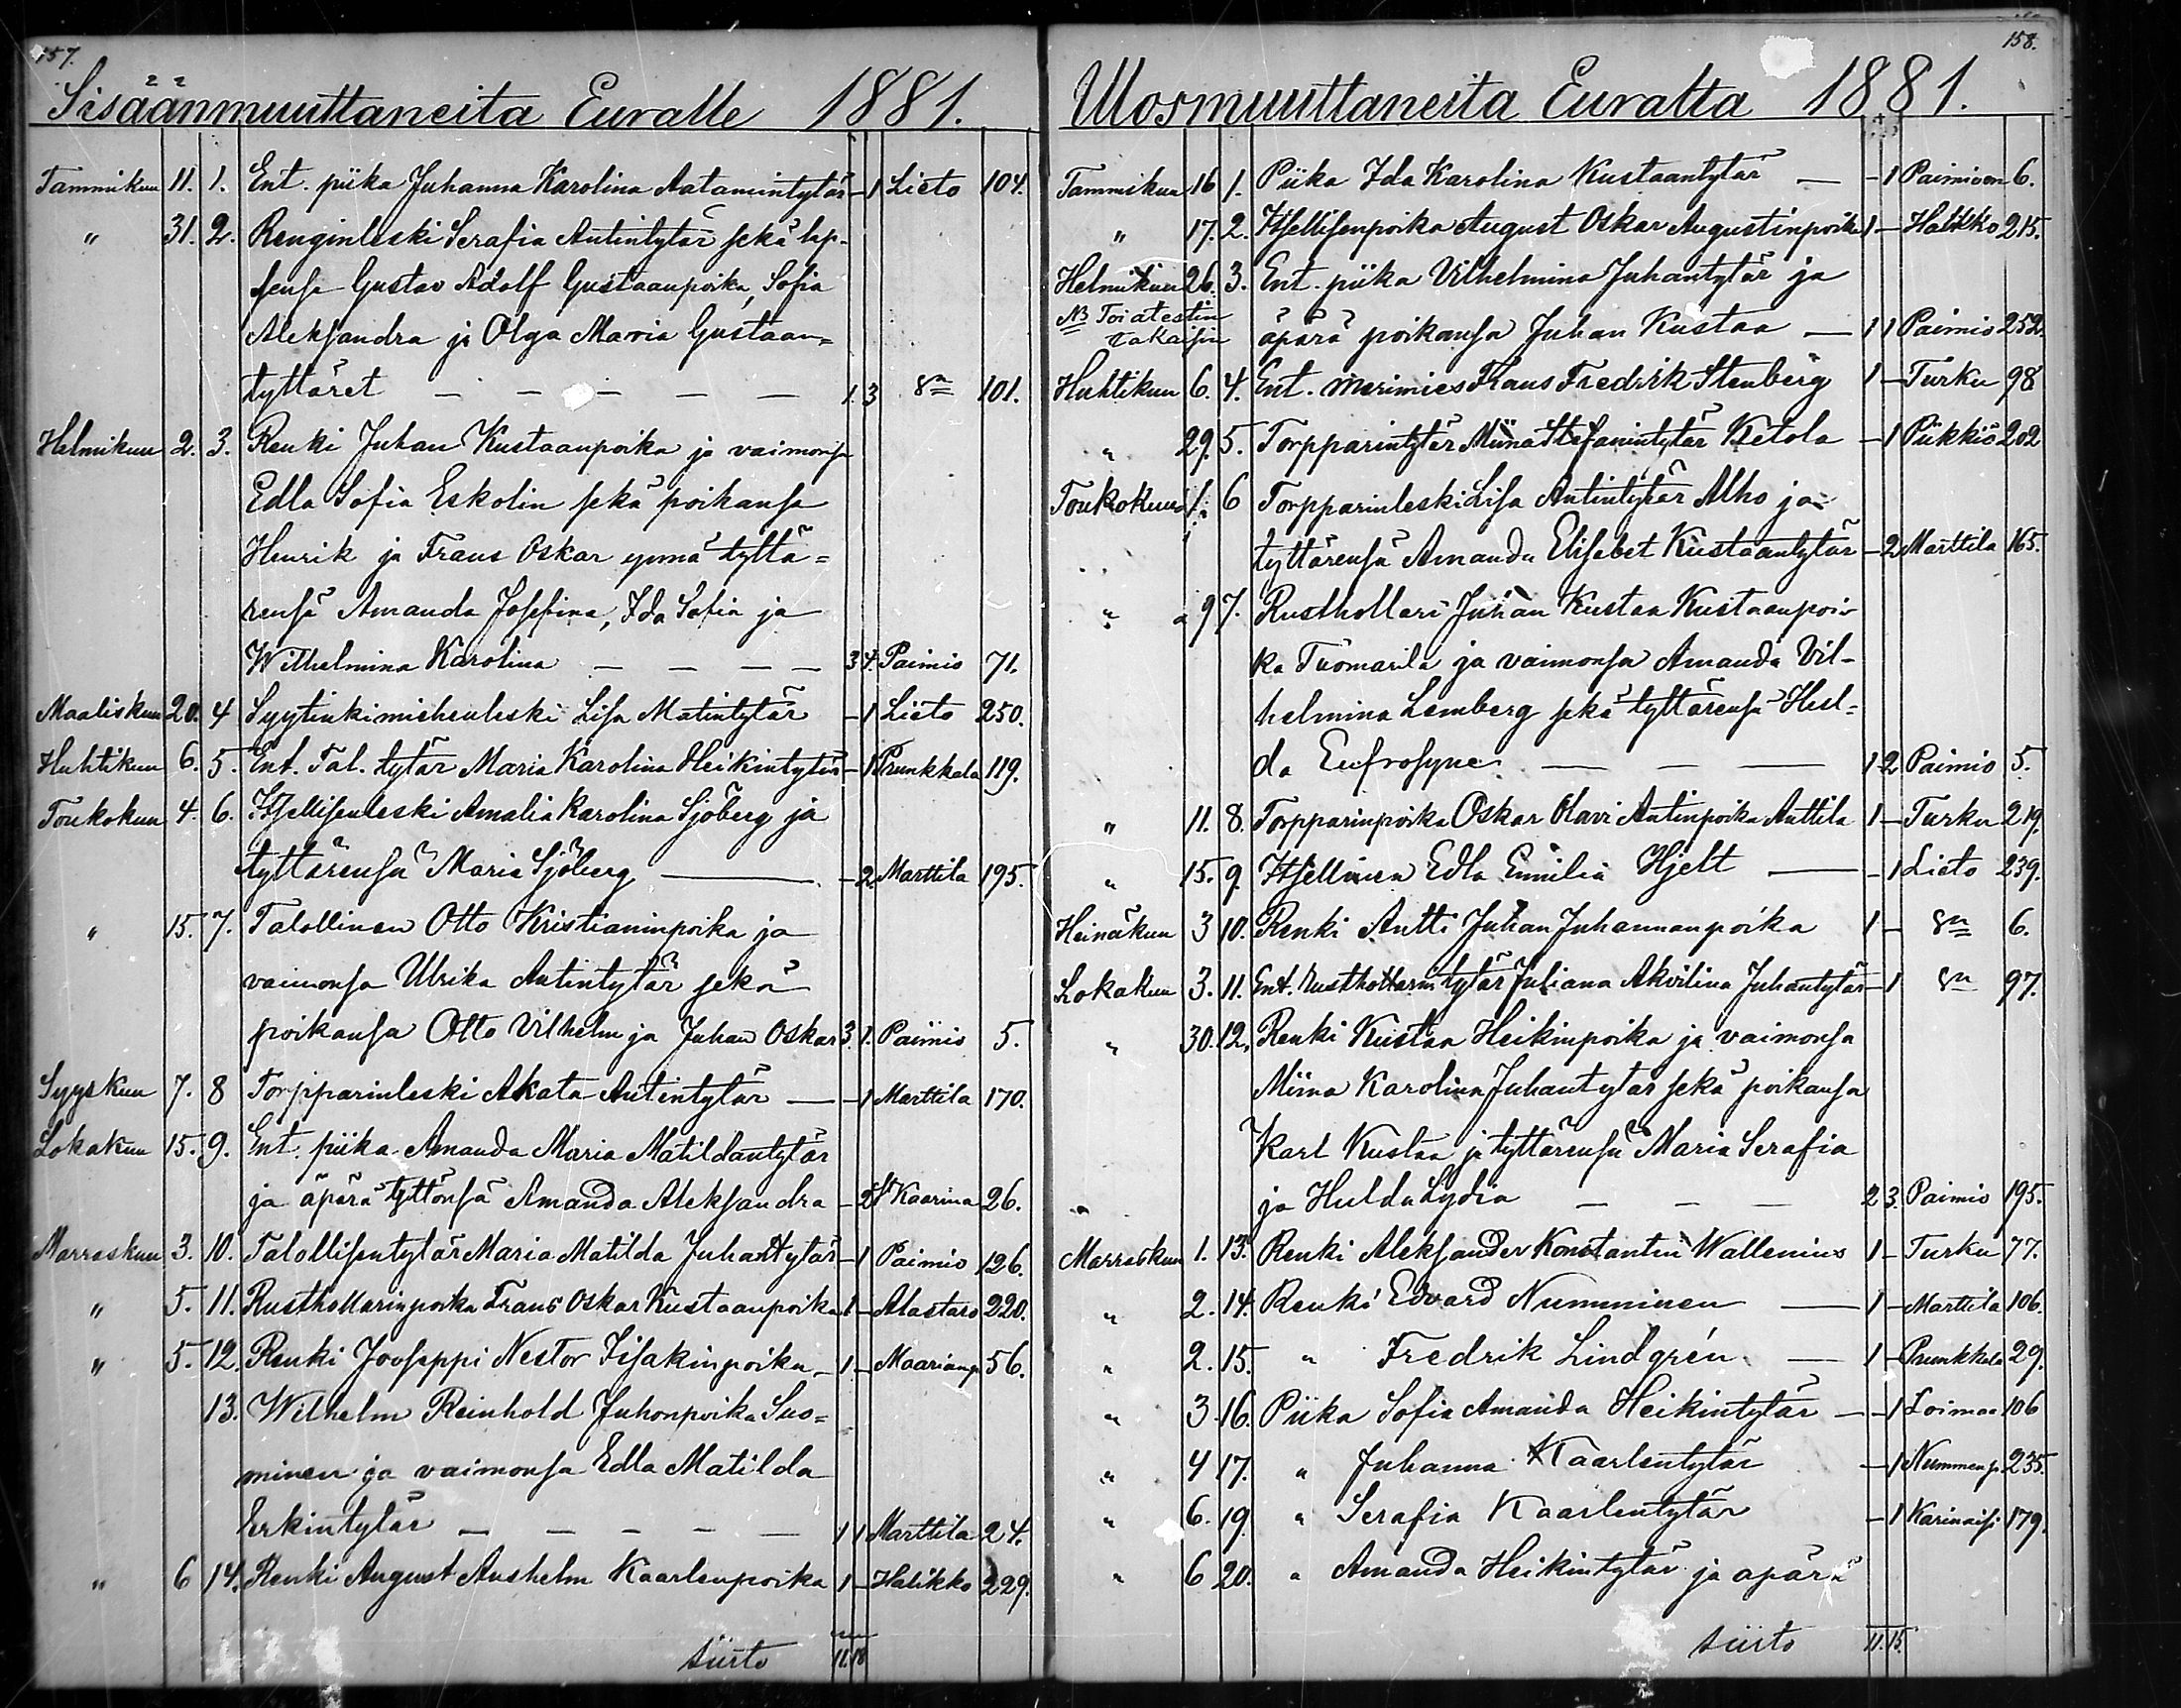 157.
Sisäänmuuttaneita Euralle 1881.
Tammikuu 11. 1. Ent. piika Juhanna Karolina Aatamintytär - 1 Lieto 104.
" 31. 2. Renginleski Serafia Antintytär sekä lap-
sensa Gustav Adolf Gustaanpoika, Sofia
Aleksandra ja Olga Maria Gustaan=
tyttäret — — — — — 1. 3 101.
Helmikuu 2. 3. Renki Juhan Kustaanpoika ja vaimonsa
Edla Sofia Eskolin sekä poikansa
Henrik ja Frans Oskar ynnä tyttä=
rensä Amanda Josefina, Ida Sofia ja
Wilhelmina Karolina — — — — 3 4. Paimio 71.
Maaliskuu 20. 4 Syytinkimiehenleski Lisa Matintytär - 1 Lieto 250.
Huhtikuu 6. 5. Ent. Tal. tytär Maria Karolina Heikintytär - 1 Prunkkala 119.
Toukokuu 4. 6. Itsellisenleski Amalia Karolina Sjöberg ja
tyttärensä Maria Sjöberg — - 2. Marttila 195.
" 15. 7. Talollinen Otto Kristianinpoika ja
vaimonsa Ulrika Antintytär sekä
poikansa Otto Vilhelm ja Juhan Oskar 3. 1. Paimio 5.
Syyskuu 7. 8 Torpparinleski Akata Antintytär — - 1 Marttila 170.
Lokakuu 15. 9. Ent. piika Amanda Maria Matildantytär
ja äpärä tyttönsä Amanda Aleksandra - 2 St Kaarina 26.
Marraskuu 3. 10. Talollisentytär Maria Matilda Juhantytär - 1 Paimio 126.
" 5. 11. Rusthollarinpoika Frans Oskar Kustaanpoika 1 - Alastaro 220.
" 5. 12. Renki Jooseppi Nestor Iisakinpoika - 1 - Maarianp. 56.
13. Wilhelm Reinhold Juhonpoika Suo=
minen ja vaimonsa Edla Matilda
Erkintytär — — — — — 1 1 Marttila 24.
" 6 14. Renki August Anshelm Kaarlenpoika 1 - Halikko 229.
siirto 11. 18
158.
Ulosmuuttaneita Euralta 1881.
Tammikuu 16 1. Piika Ida Karolina Kustaantytär — - 1 Paimioon 6.
" 17. 2. Itsellisenpoika August Oskar Augustinpoika 1 - Halikko 215.
Helmikuu 26. 3. Ent. piika Vilhelmina Juhantytär ja
NB Toi atestin
takaisin äpärä poikansa Juhan Kustaa — 1 1 Paimio 252.
Huhtikuu 6. 4. Ent. merimies Frans Fredrik Stenberg 1 - Turku 98
" 29. 5. Torpparintytär Miina Stefanintytär Ketola - 1 Piikkiö 202
Toukokuu 1. 6 Torpparinleski Lisa Antintytär Alho ja
tyttärensä Amanda Elisabet Kustaantytär - 2 Marttila 165.
" 9 7. Rusthollari Juhan Kustaa Kustaanpoi-
ka Tuomarila ja vaimonsa Amanda Vil-
helmina Lemberg sekä tyttärensä Hul=
da Eufrosyne — — — 1 2 Paimio 5.
" 11. 8. Torpparinpoika Oskar Olavi Antinpoika Anttila 1 - Turku 219.
" 15. 9. Itsellinen Edla Emilia Hjelt — - 1 Lieto 239.
Heinäkuu 3 10. Renki Antti Juhan Juhannanpoika 1 - 6.
Lokakuu 3. 11. Ent. rusthollarintytär Juliana Akvilina Juhantytär - 1 97.
" 30. 12. Renki Kustaa Heikinpoika ja vaimonsa
Miina Karolina Juhantytär sekä poikansa
Karl Kustaa ja tyttärensä Maria Serafia
ja Hulda Lydia — — — 2 3. Paimio 195.
Marraskuu 1. 13. Renki Aleksander Konstantin Wallenius 1 - Turku 77.
" 2. 14. Renki Edvard Numminen — 1 - Marttila 106.
" 2. 15. " Fredrik Lindgrén — 1 - Prunkkala 29.
" 3 16. Piika Sofia Amanda Heikintytär — - 1 Loimaa 106
" 4 17. " Juhanna Kaarlentytär - 1 Nummenp. 235.
" 6. 19. " Serafia Kaarlentytär - 1 Karinaisi 179.
" 6 20. " Amanda Heikintytär ja äpärä
siirto 11. 15.